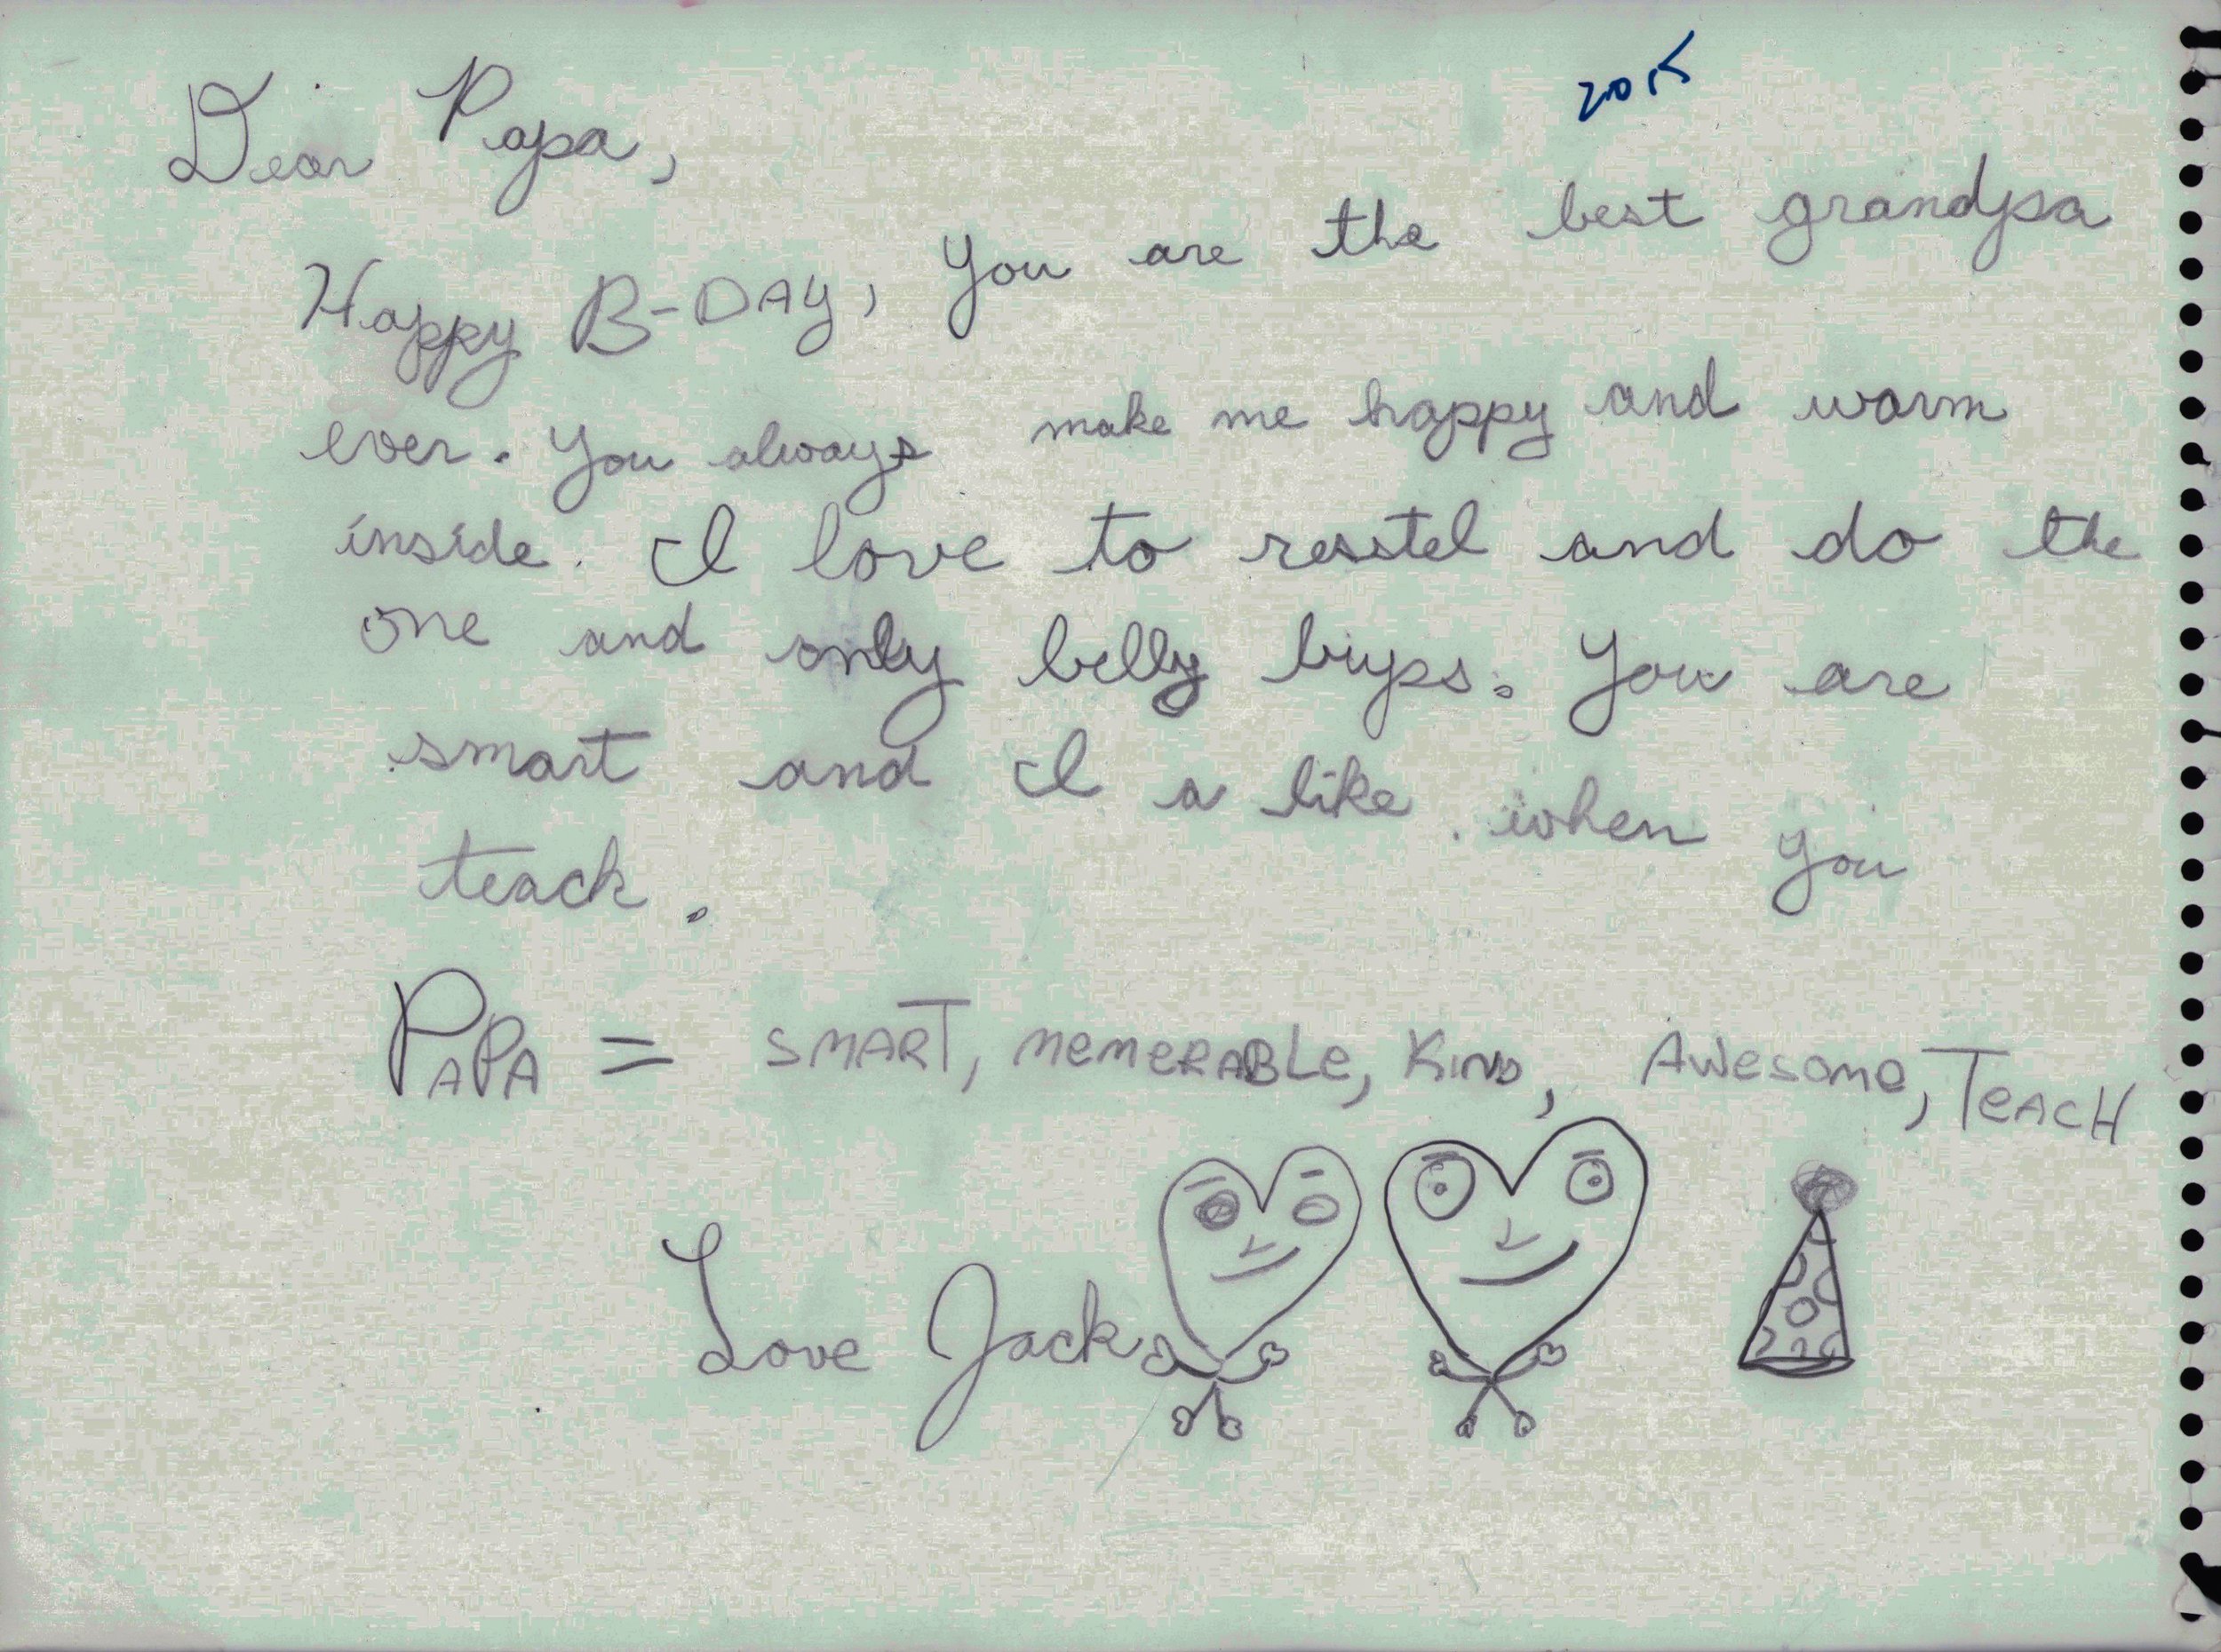 2015
Dear Papa,
Happy B-DAY, You are the best grandpa
ever. You always make me happy and warm
inside. I love to resstel and do the
one and only belly bups. You are
smart and I a like when you
teach.
PAPA = SMART, MEMERABLE, KIND, AWESOME, TEACH
Love Jack